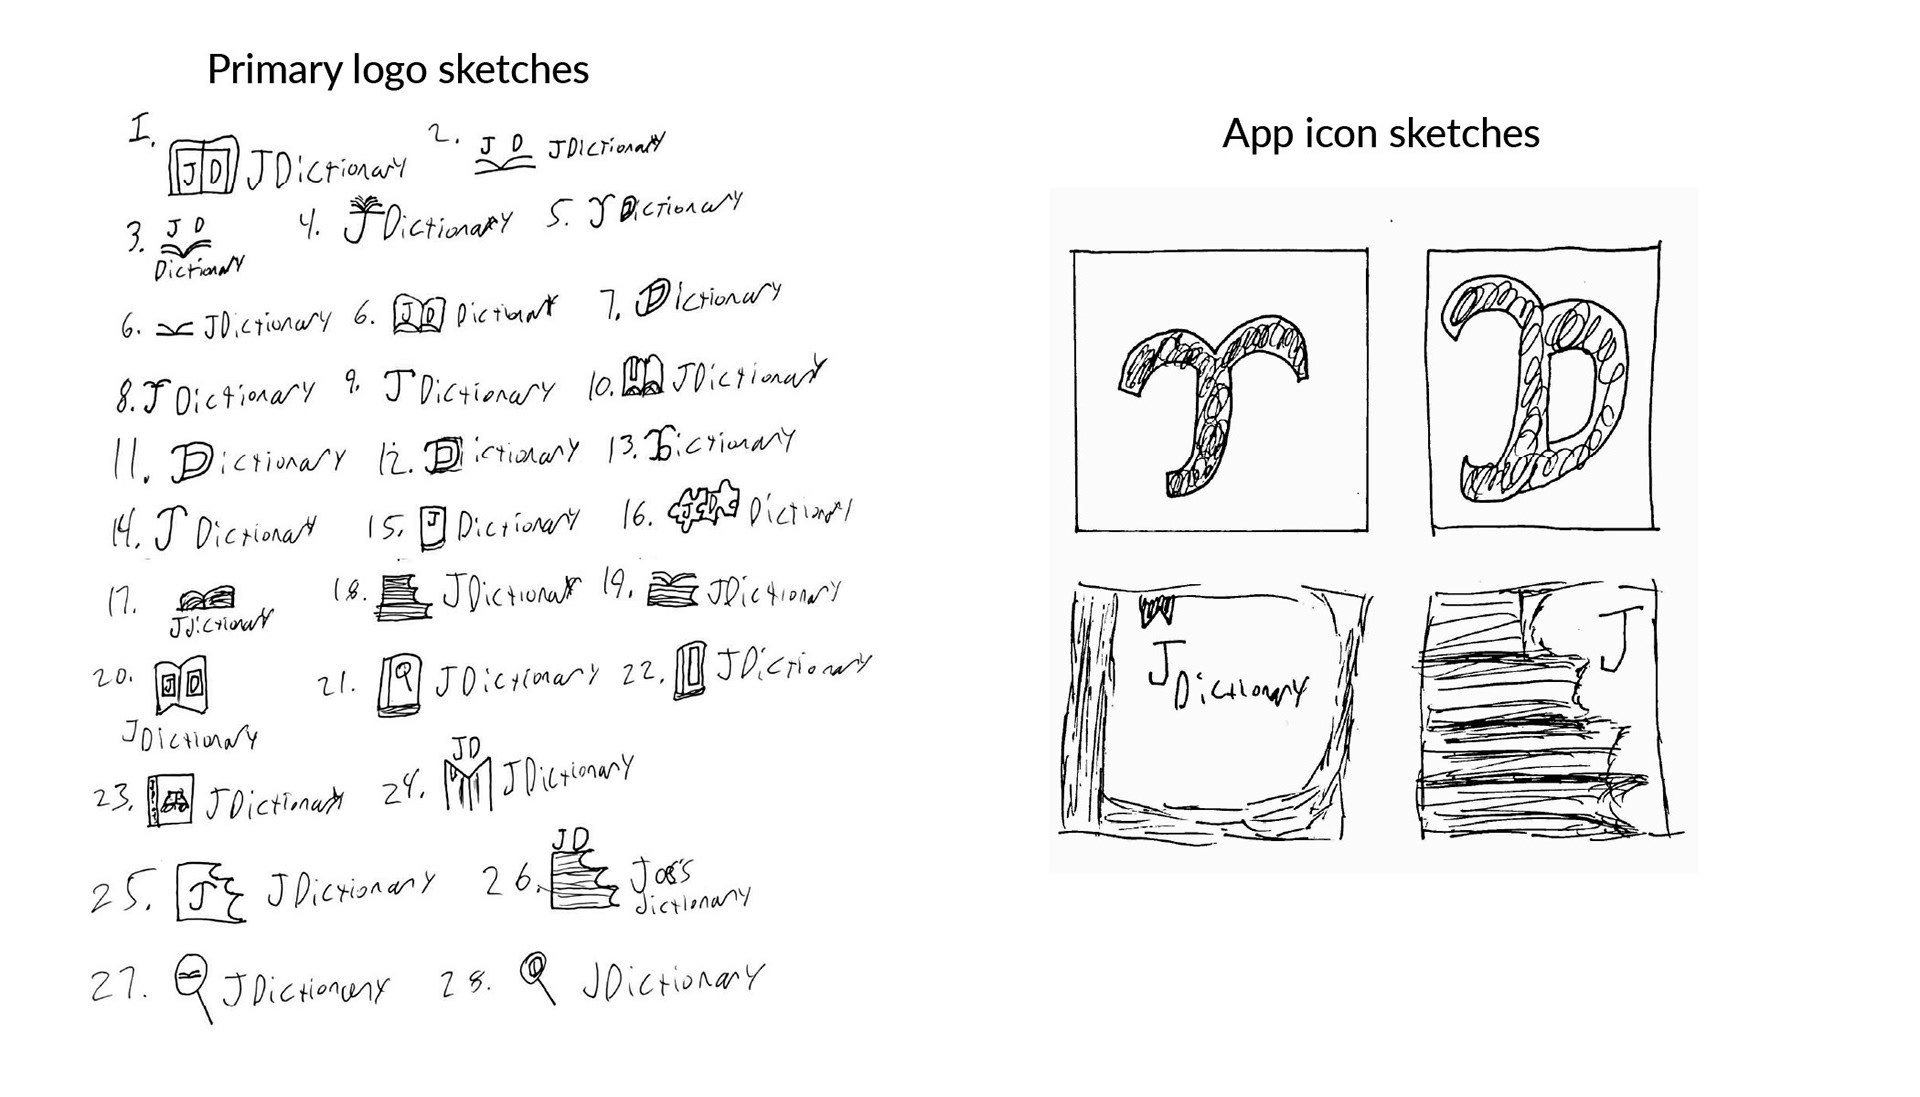 Primary logo sketches
App icon sketches
1. JD JDictionary 2. J D JDictionary
3. J D Dictionary 4. JDictionary 5. J Dictionary
6. JDictionary 6. J D Dictionary 7. Dictionary
8. J Dictionary 9. J Dictionary 10. JDictionary
11. Dictionary 12. Dictionary 13. Dictionary
14. J Dictionary 15. J Dictionary 16. J D Dictionary
17. JDictionary 18. JDictionary 19. JDictionary
20. J D JDictionary 21. JDictionary 22. JDictionary
23. JDictionary 24. JD JDictionary
25. J JDictionary 26. JD Job's dictionary
27. JDictionary 28. D JDictionary
J
JD
J Dictionary
J